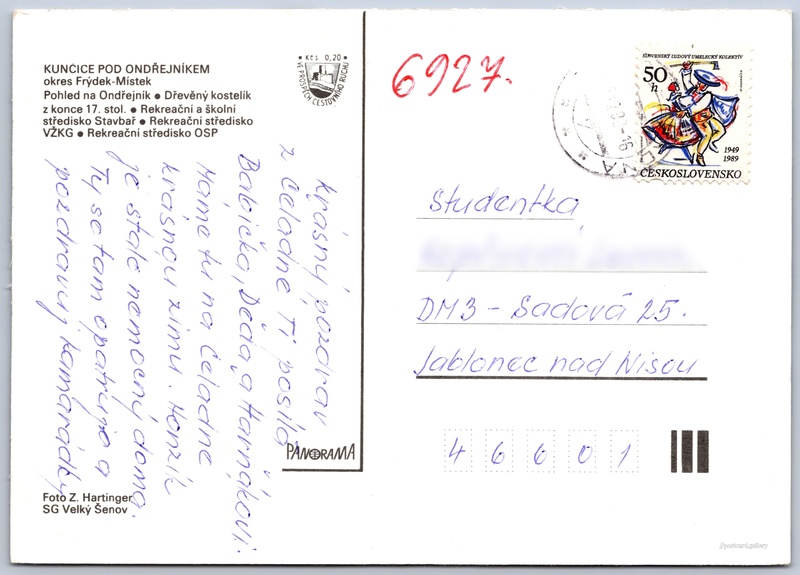 KUNČICE POD ONDŘEJNÍKEM
okres Frýdek-Místek
Pohled na Ondřejník ● Dřevěný kostelík
z konce 17. stol. ● Rekreační a školní
středisko Stavbař ● Rekreační středisko
VŽKG ● Rekreační středisko OSP
Krásný pozdrav
z Čeladné Ti posílá
Babička, Děda, a Harňákovi.
Máme tu na Čeladné
krásnou zimu. Honzík
je stále nemocný doma.
Ty se tam opatruj a
pozdravuj kamarádky
Foto Z. Hartinger
SG Velký Šenov
Kčs 0,20
VE PROSPĚCH CESTOVNÍHO RUCHU
PANORAMA
6927.
SLOVENSKÝ ĽUDOVÝ UMELECKÝ KOLEKTÍV
50 h
1949
1989
ČESKOSLOVENSKO
Studentka
DM3 - Sadová 25.
Jablonec nad Nisou
46601
//postcard.gallery